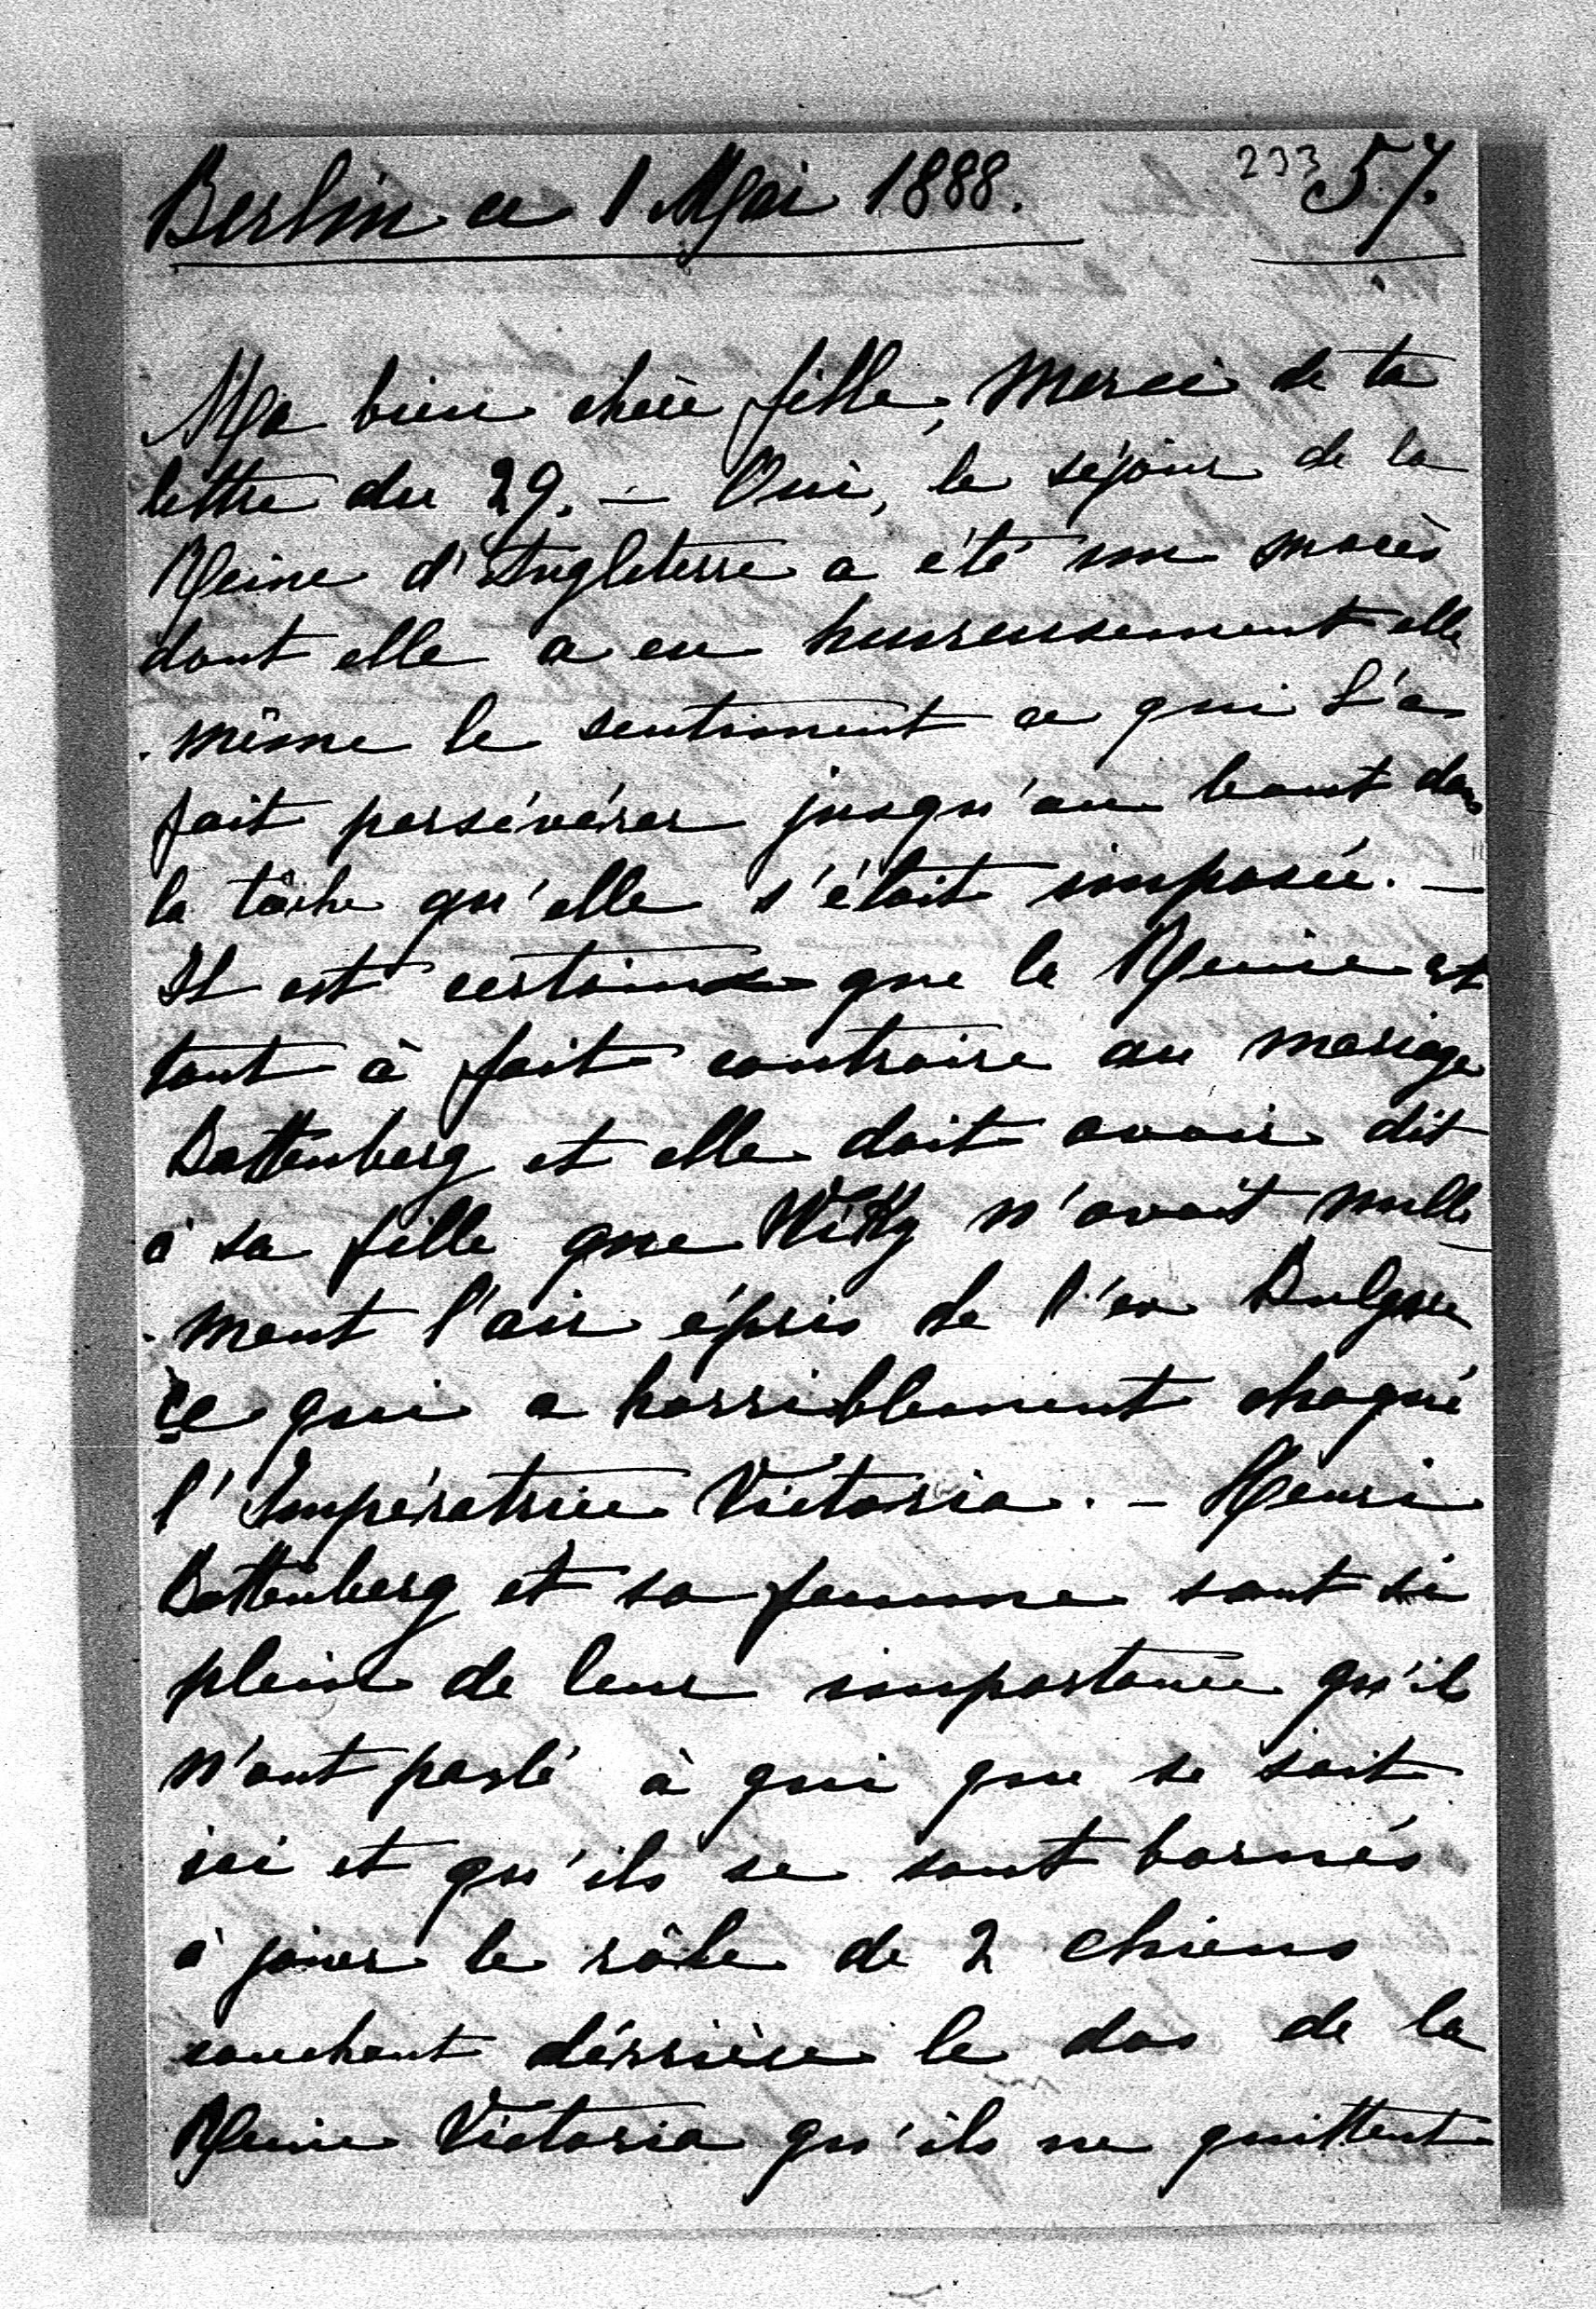 Berlin ce 1 Mai 1888.
233 57.
Ma bien chère fille, merci de ta
lettre du 29. – Oui, le séjour de la
Reine d'Angleterre a été un succès
dont elle a eu heureusement elle
même le sentiment ce qui l'a
fait persévérer jusqu'au bout dans
la tâche qu'elle s'était imposée. –
Il est certain que la Reine est
tout à fait contraire au mariage
Battenberg et elle doit avoir dit
à sa fille que Wiky n'avait nulle
ment l'air épris de l'ex Bulgare
ce qui a horriblement choqué
l'Impératrice Victoria. – Henri
Battenberg et sa femme sont si
plein de leur importance qu'ils
n'ont parlé à qui que se soit
ici et qu'ils se sont bornés
à jouer le rôle de 2 chiens
couchant dérrière le dos de la
Reine Victoria qu'ils ne quittent